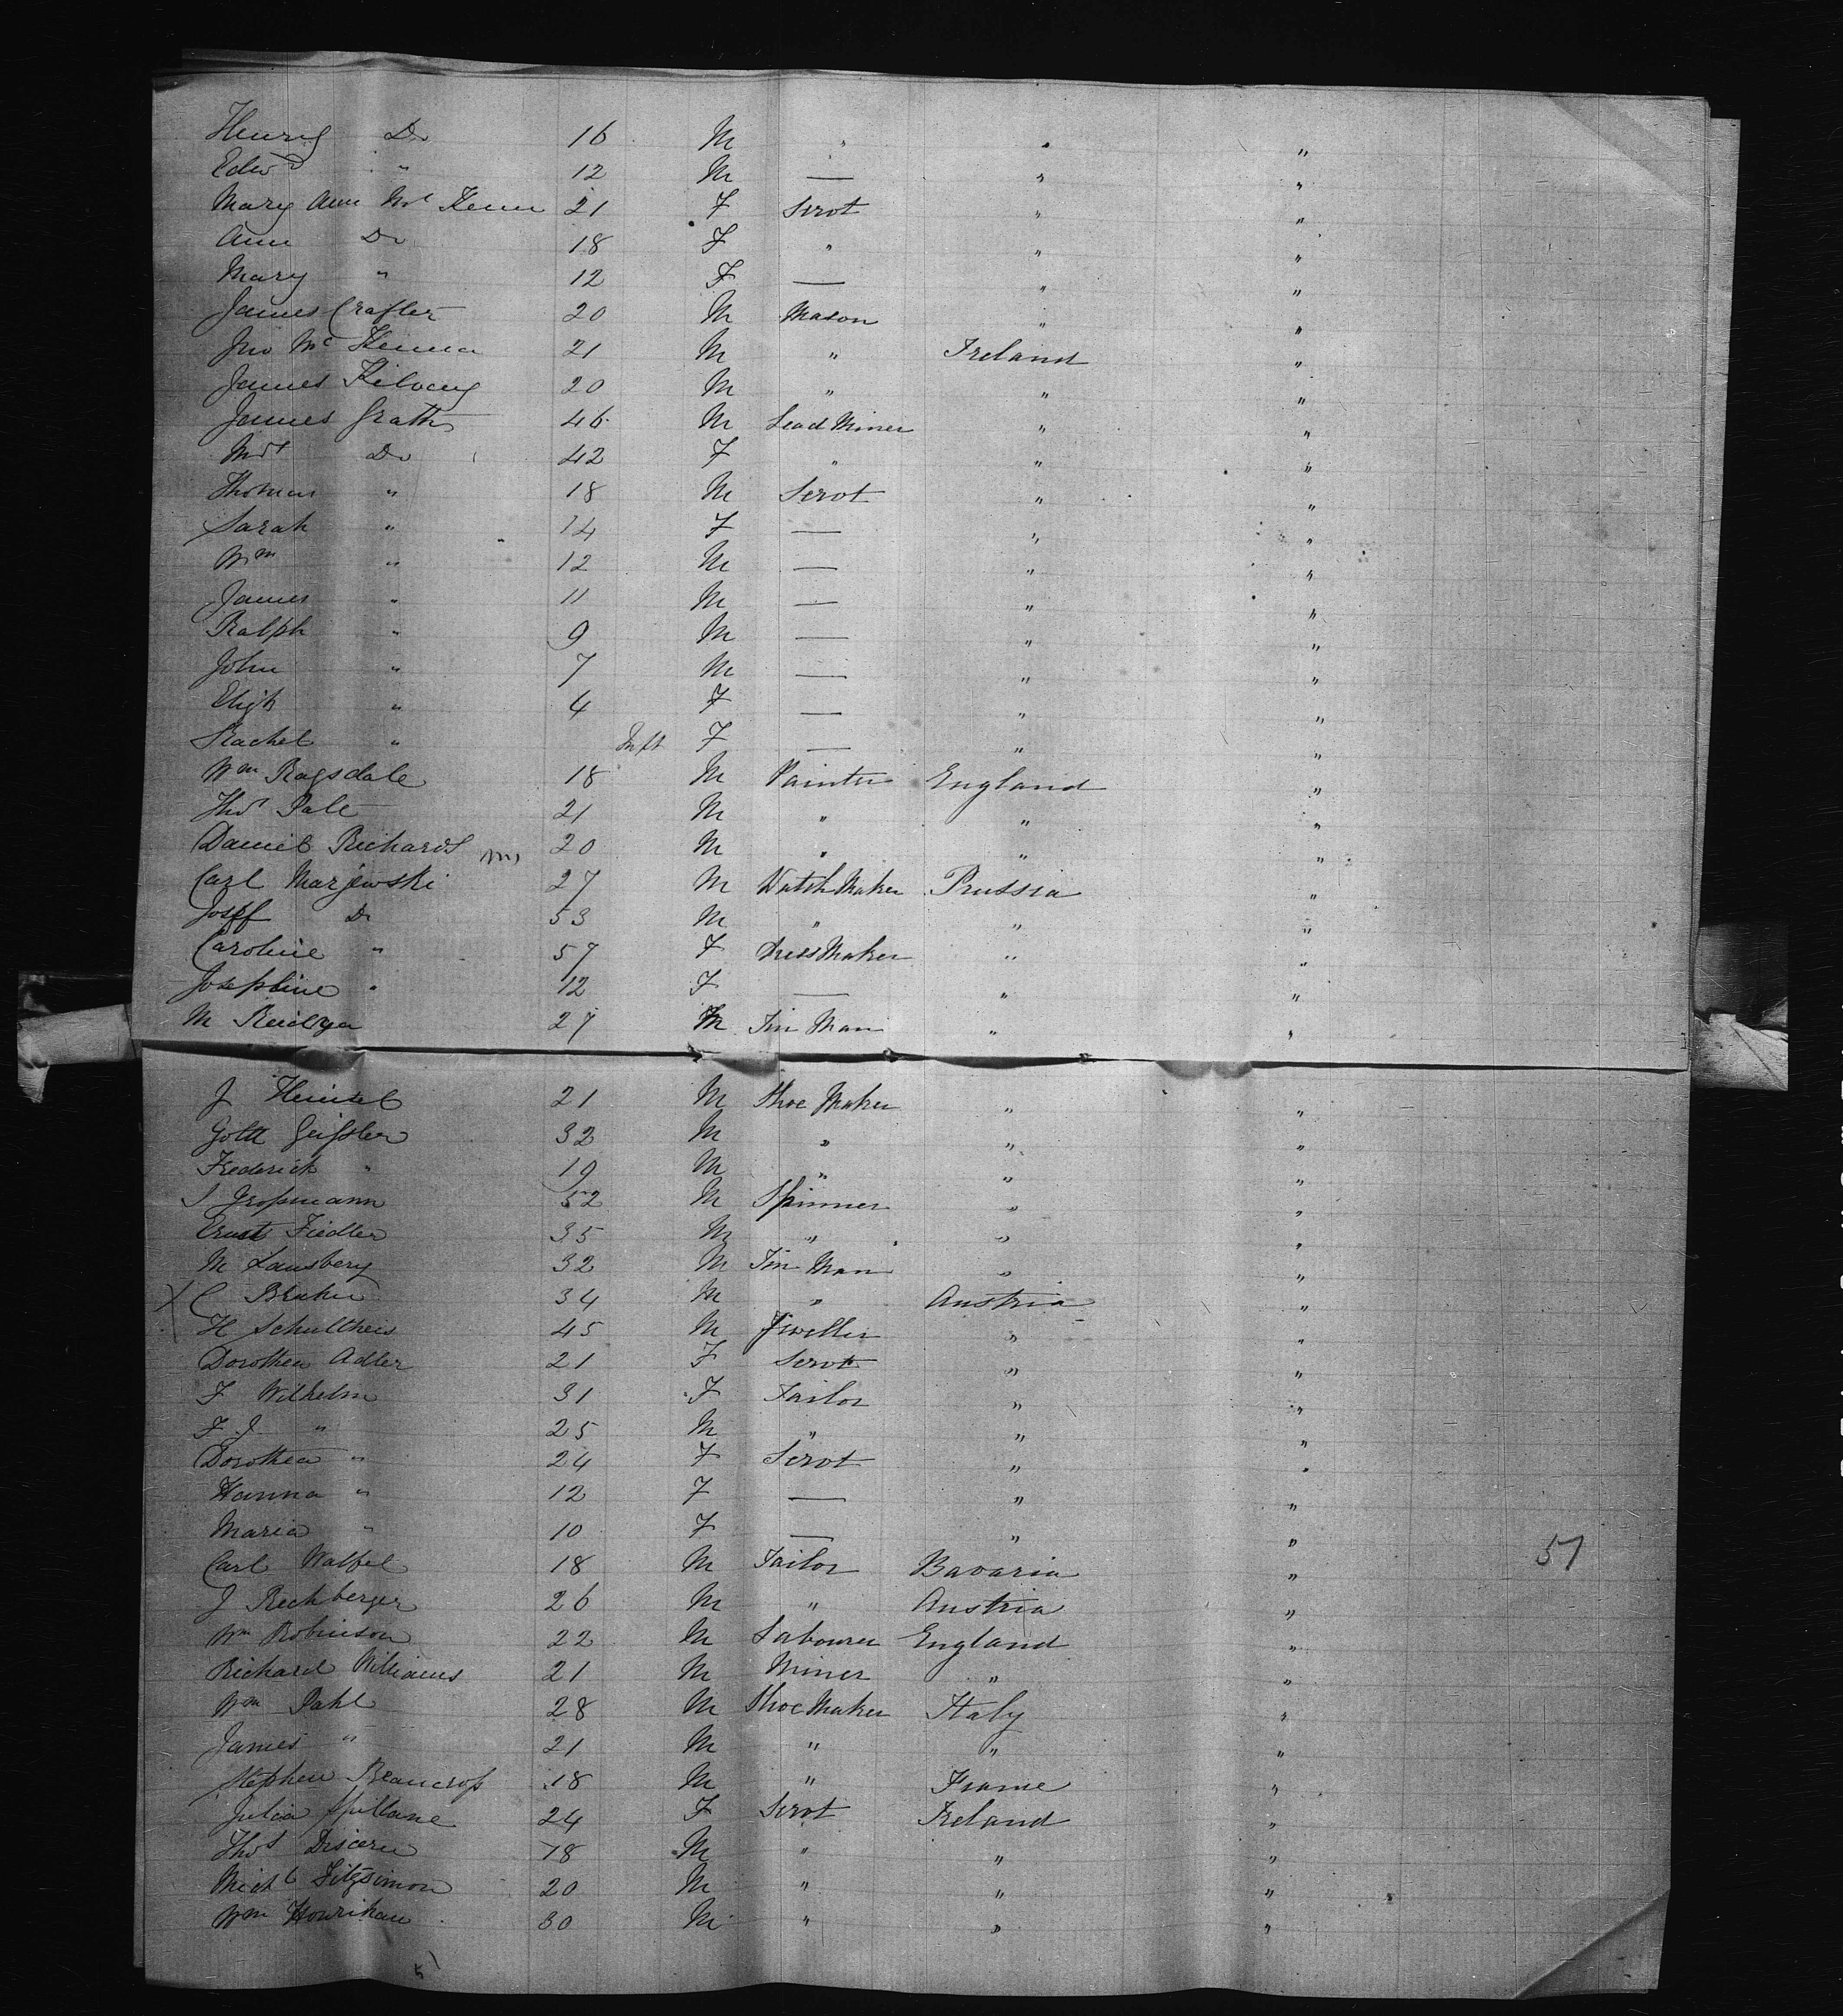 Henry Do 16 M " " "
Edwd " 12 M — " "
Mary Ann Mc Kenn 21 F Servt " "
Ann Do 18 F " " "
Mary " 12 F — " "
James Crafter 20 M Mason " "
Jno Mc Kenna 21 M " Ireland "
James 20 M " " "
James Grath 46 M Lead Miner " "
Mgt Do 42 F " " "
Thomas " 18 M Servt " "
Sarah " 14 F — " "
Wm " 12 M — " "
James " 11 M — " "
Ralph " 9 M — " "
John " 7 M — " "
Elizh " 4 F — " "
Rachel " Inft F — " "
Wm Ragsdale 18 M Painter England "
Thos 21 M " " "
Daniel Richards 20 M " " "
Carl Marjewski 27 M Watch Maker Prussia "
Josef Do 53 M " " "
Caroline " 57 F Dress Maker " "
Josephine " 12 F — " "
M 27 M Tin Man " "
J Heinsel 21 M Shoe Maker " "
Gott Geissler 32 M " " "
Frederick " 19 M " " "
J Grossmann 52 M Spinner " "
Ernst Fiedler 35 M " " "
M Lansberg 32 M Tin Man " "
X C 34 M " Austria "
H Schultheis 45 M Jweller " "
Dorothea Adler 21 F Servt " "
F Wilhelm 31 F Tailor " "
F J " 25 M " " "
Dorothea " 24 F Servt " "
Hanna " 12 F — " "
Maria " 10 F — " "
Carl 18 M Tailor Bavaria "
51
J Rechberger 26 M " Austria "
Wm Robinson 22 M Labourer England "
Richard Williams 21 M Miner " "
Wm Pahl 28 M Shoe Maker Italy "
James " 21 M " " "
Stephen Beancross 18 M " France "
Julia Spillane 24 F Servt Ireland "
Thos 18 M " " "
Michl Fitzsimon 20 M " " "
Wm Hourihan 30 M " " "